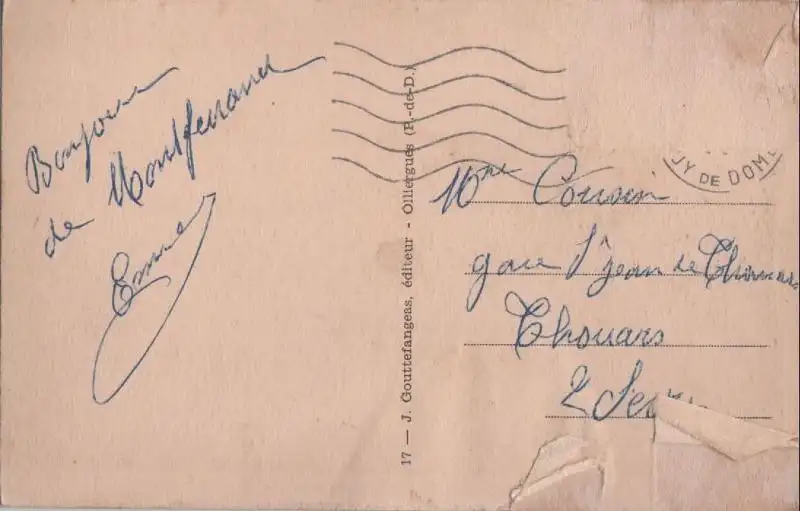 Bonjour
de Montferrand
17 — J. Gouttefangeas, éditeur - Olliergues (P.-de-D.)
UY DE DOME
Mme Cousin
gare St Jean de Thouars
Thouars
2 Sevres